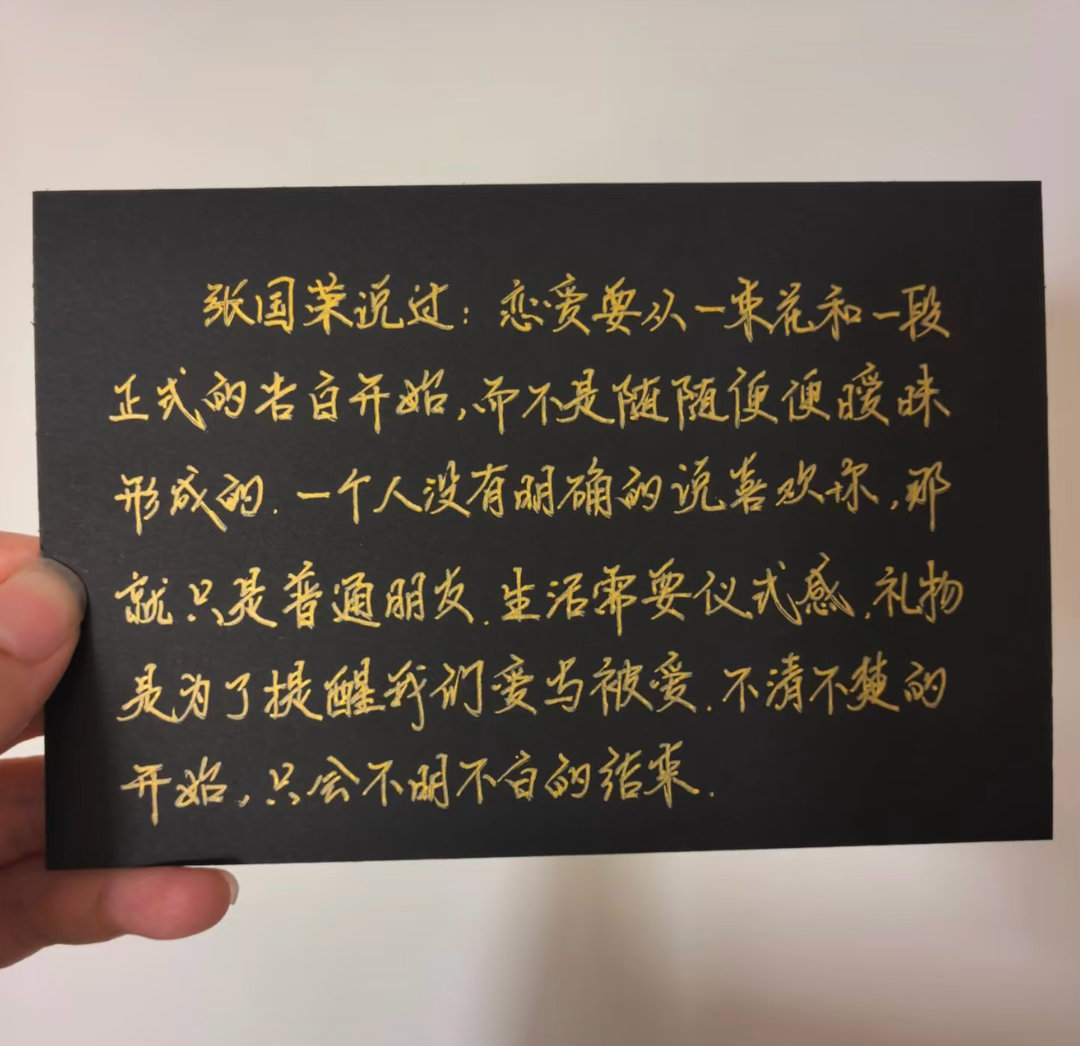 张国荣说过：恋爱要从一束花和一段
正式的告白开始,而不是随随便便暧昧
形成的.一个人没有明确的说喜欢你,那
就只是普通朋友.生活需要仪式感.礼物
是为了提醒我们爱与被爱.不清不楚的
开始,只会不明不白的结束.